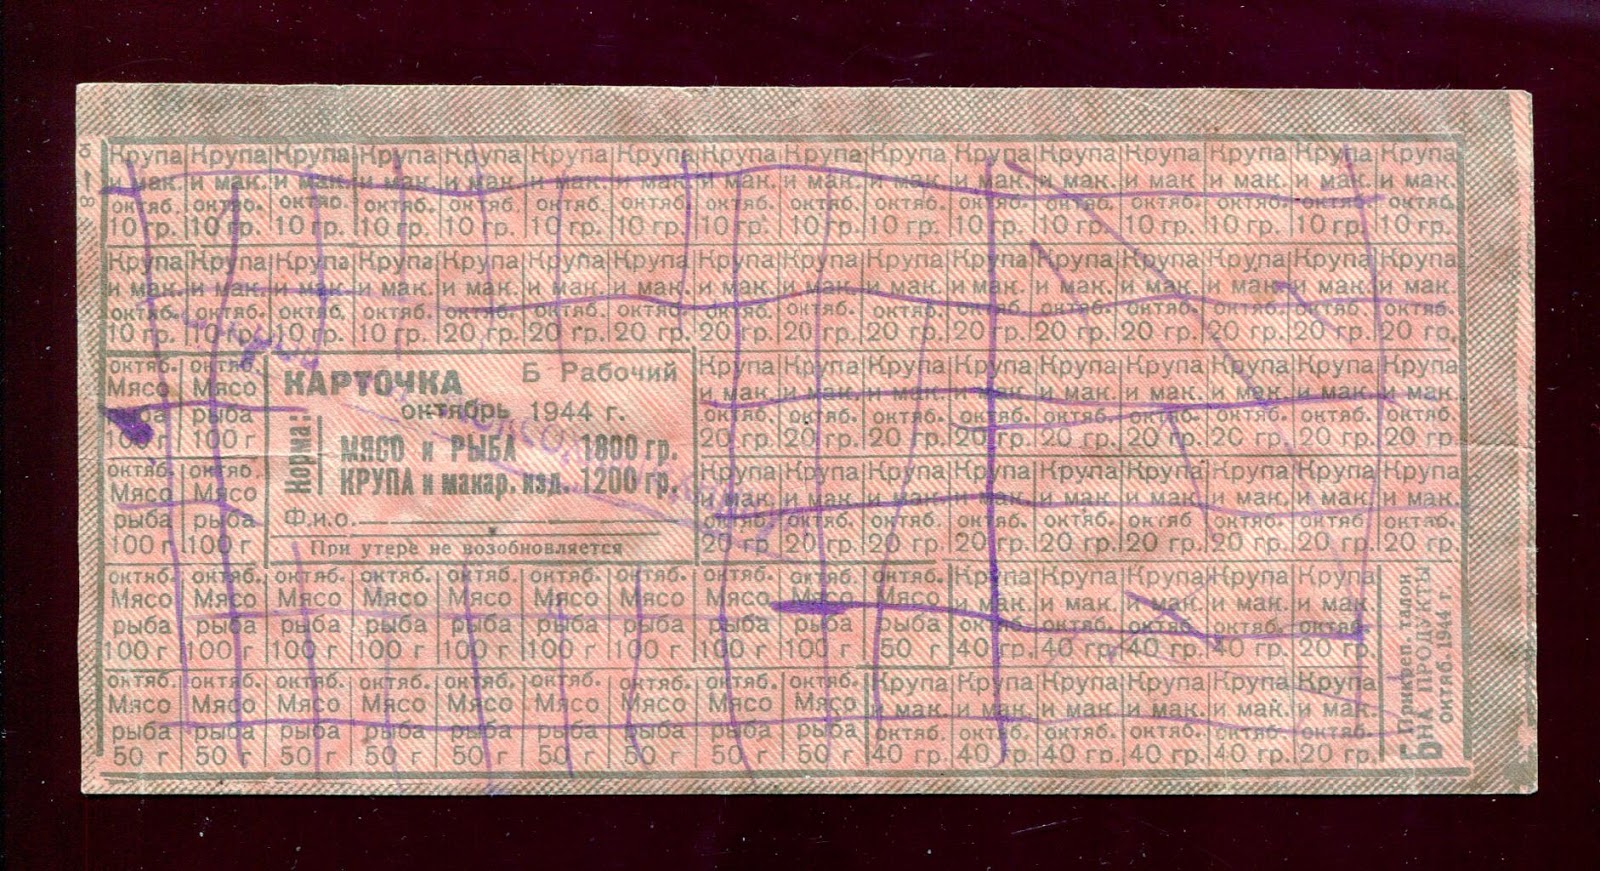 Крупа Крупа Крупа Крупа Крупа Крупа Крупа Крупа Крупа Крупа Крупа Крупа Крупа Крупа Крупа Крупа
и мак. и мак. и мак. и мак. и мак. и мак. и мак. и мак. и мак. и мак. и мак. и мак. и мак. и мак. и мак. и мак.
октяб. октяб. октяб. октяб. октяб. октяб. октяб. октяб. октяб. октяб. октяб. октяб. октяб. октяб. октяб. октяб.
10 гр. 10 гр. 10 гр. 10 гр. 10 гр. 10 гр. 10 гр. 10 гр. 10 гр. 10 гр. 10 гр. 10 гр. 10 гр. 10 гр. 10 гр. 10 гр.
Крупа Крупа Крупа Крупа Крупа Крупа Крупа Крупа Крупа Крупа Крупа Крупа Крупа Крупа Крупа Крупа
и мак. и мак. и мак. и мак. и мак. и мак. и мак. и мак. и мак. и мак. и мак. и мак. и мак. и мак. и мак. и мак.
октяб. октяб. октяб. октяб. октяб. октяб. октяб. октяб. октяб. октяб. октяб. октяб. октяб. октяб. октяб. октяб.
10 гр. 10 гр. 10 гр. 10 гр. 20 гр. 20 гр. 20 гр. 20 гр. 20 гр. 20 гр. 20 гр. 20 гр. 20 гр. 20 гр. 20 гр. 20 гр.
октяб. октяб.
Мясо Мясо
рыба рыба
100 г 100 г
октяб. октяб.
Мясо Мясо
рыба рыба
100 г 100 г
КАРТОЧКА Б Рабочий
октябрь 1944 г.
Норма:
МЯСО и РЫБА 1800 гр.
КРУПА и макар. изд. 1200 гр.
Ф.и.о.
При утере не возобновляется
Крупа Крупа Крупа Крупа Крупа Крупа Крупа Крупа Крупа
и мак. и мак. и мак. и мак. и мак. и мак. и мак. и мак. и мак.
октяб. октяб. октяб. октяб. октяб. октяб. октяб. октяб. октяб.
20 гр. 20 гр. 20 гр. 20 гр. 20 гр. 20 гр. 20 гр. 20 гр. 20 гр.
Крупа Крупа Крупа Крупа Крупа Крупа Крупа Крупа Крупа
и мак. и мак. и мак. и мак. и мак. и мак. и мак. и мак. и мак.
октяб. октяб. октяб. октяб. октяб. октяб. октяб. октяб. октяб.
20 гр. 20 гр. 20 гр. 20 гр. 20 гр. 20 гр. 20 гр. 20 гр. 20 гр.
октяб. октяб. октяб. октяб. октяб. октяб. октяб. октяб. октяб. октяб. Крупа Крупа Крупа Крупа Крупа
Мясо Мясо Мясо Мясо Мясо Мясо Мясо Мясо Мясо Мясо и мак. и мак. и мак. и мак. и мак.
рыба рыба рыба рыба рыба рыба рыба рыба рыба рыба октяб. октяб. октяб. октяб. октяб.
100 г 100 г 100 г 100 г 100 г 100 г 100 г 100 г 100 г 50 г 40 гр. 40 гр. 40 гр. 40 гр. 20 гр.
октяб. октяб. октяб. октяб. октяб. октяб. октяб. октяб. октяб. Крупа Крупа Крупа Крупа Крупа Крупа
Мясо Мясо Мясо Мясо Мясо Мясо Мясо Мясо Мясо и мак. и мак. и мак. и мак. и мак. и мак.
рыба рыба рыба рыба рыба рыба рыба рыба рыба октяб. октяб. октяб. октяб. октяб. октяб.
50 г 50 г 50 г 50 г 50 г 50 г 50 г 50 г 50 г 40 гр. 40 гр. 40 гр. 40 гр. 40 гр. 20 гр.
Прикреп. талон
Б НА ПРОДУКТЫ
октяб. 1944 г.